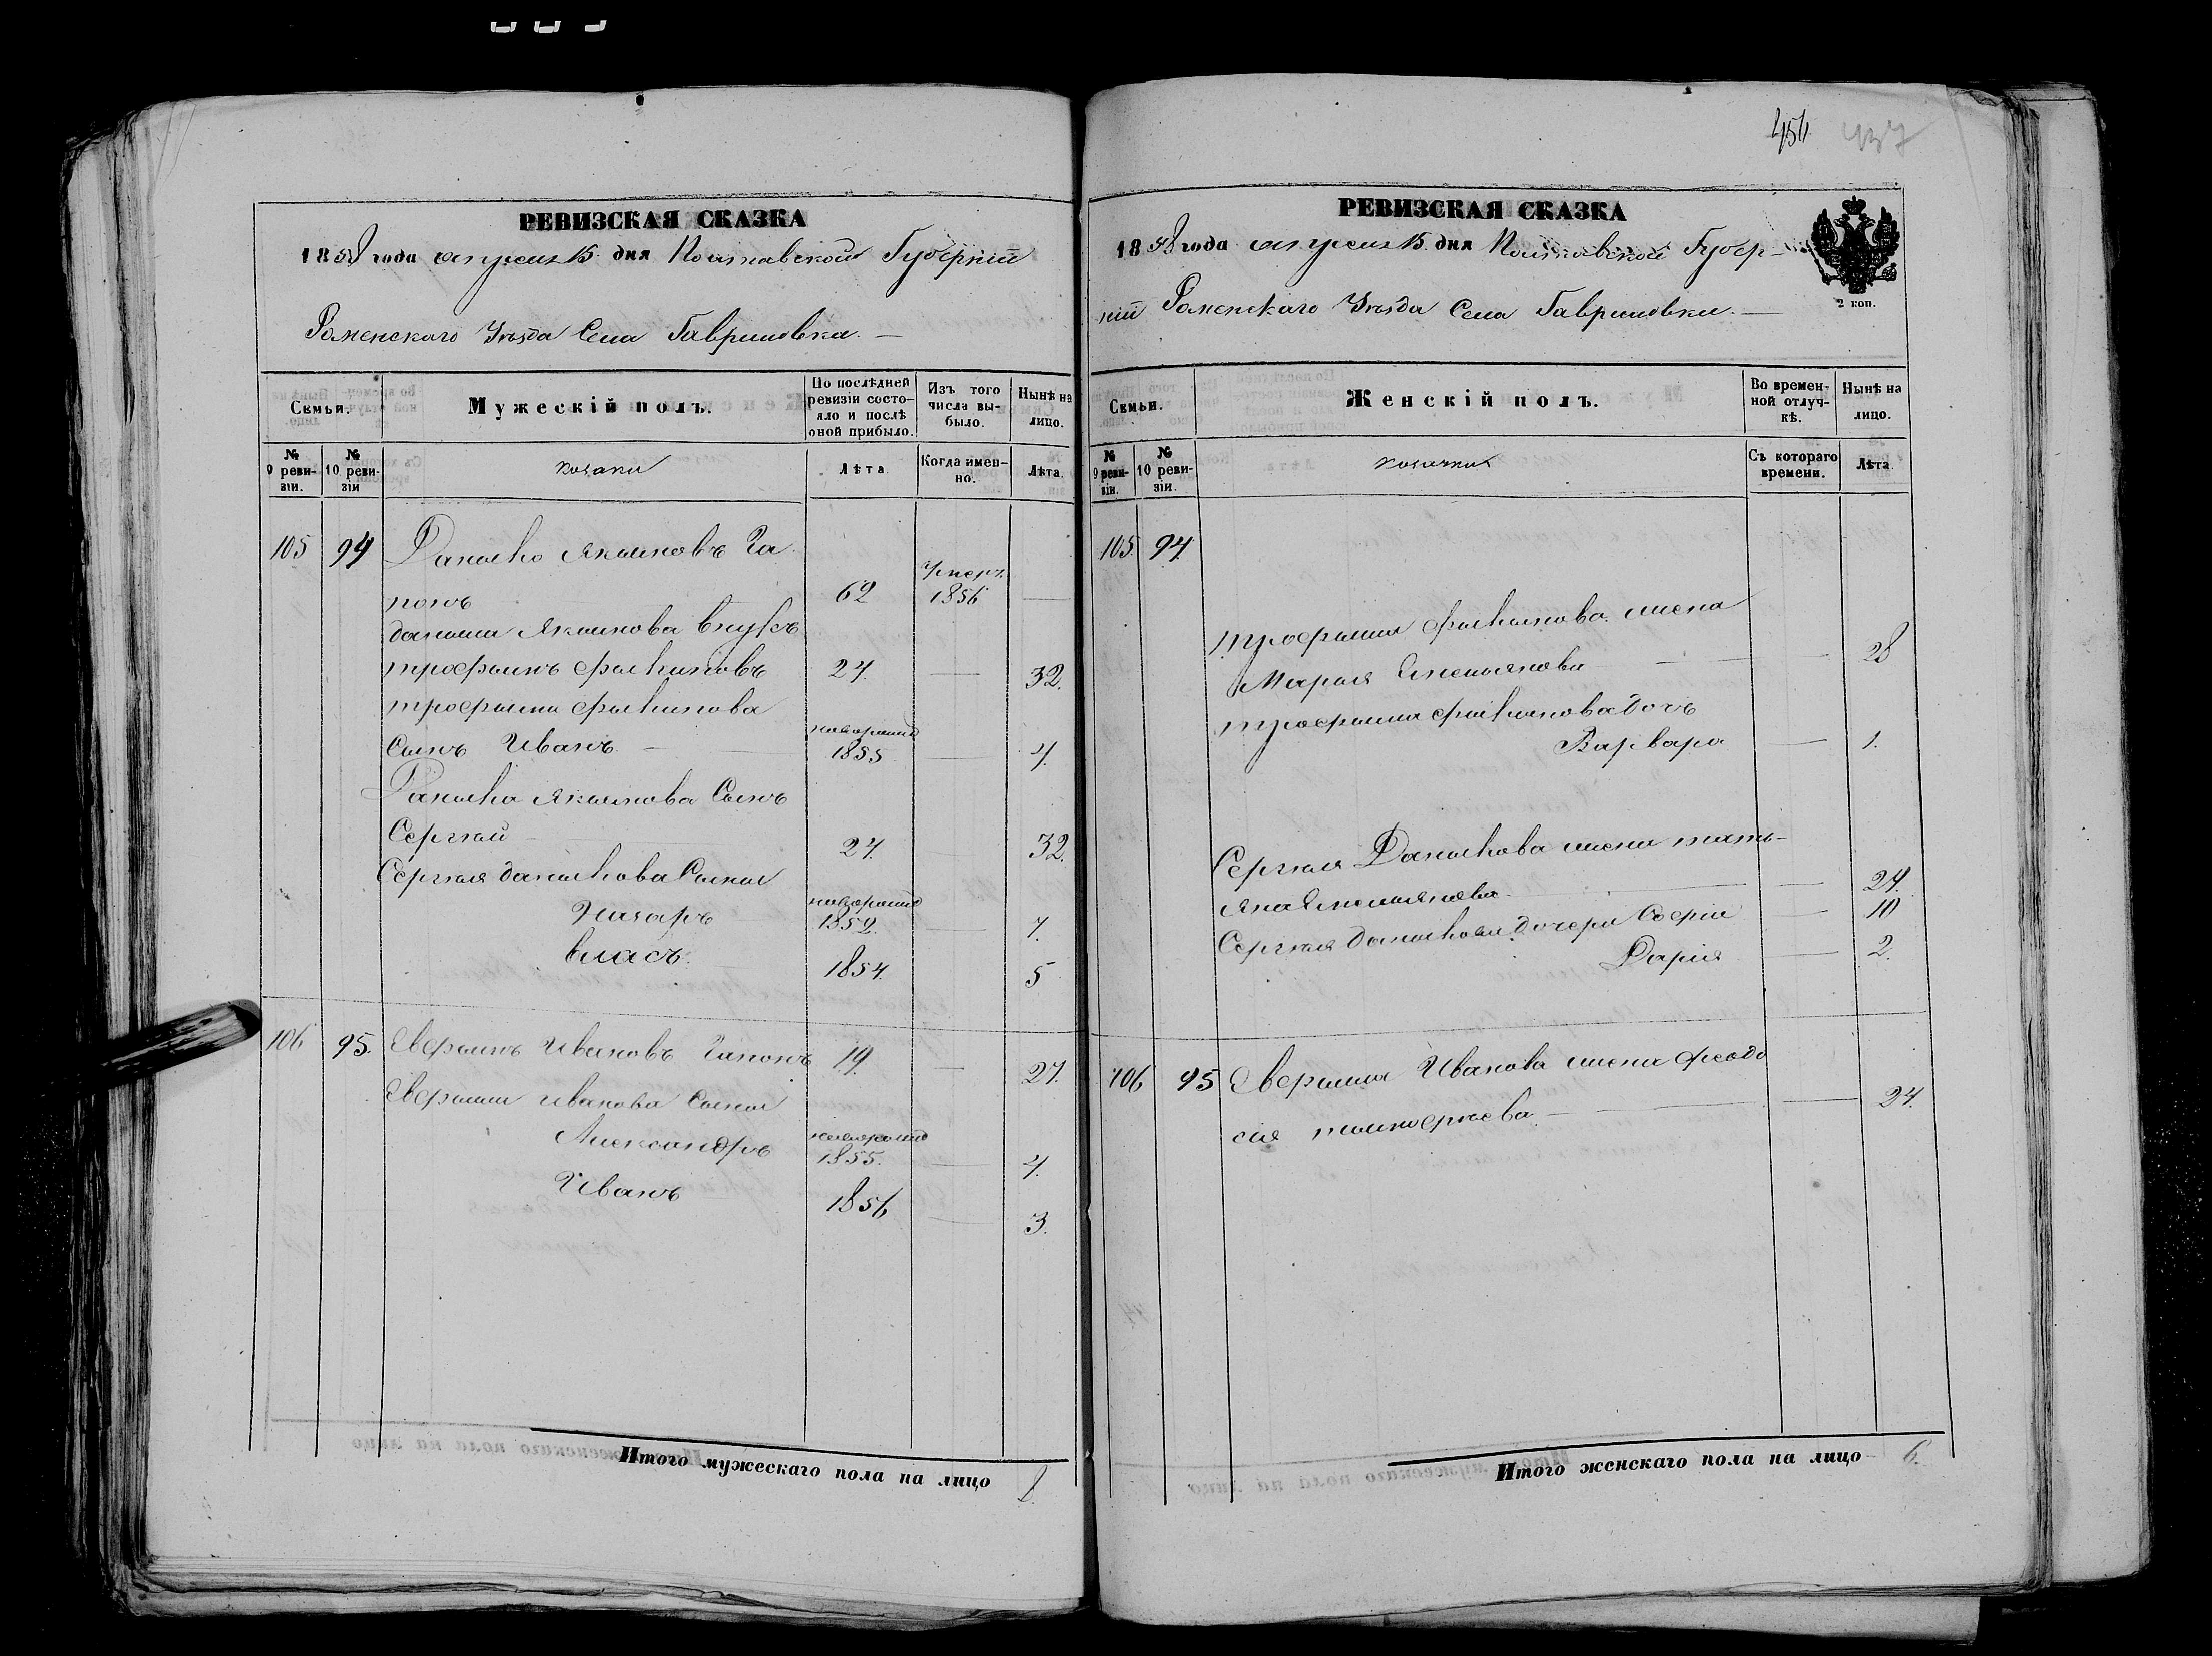 456 437
РЕВИЗСКАЯ СКАЗКА
1858 года апреля 15 дня Полтавской Губернии
Роменскаго Уѣзда Села Гавришовки. —
Семьи.
Мужескій полъ.
По послѣдней ревизіи состояло и послѣ оной прибыло.
Изъ того числа выбыло.
Нынѣ на лицо.
№ 9 ревизіи.
№ 10 ревизіи
козаки
Лѣта
Когда именно.
Лѣта.
105 94 Данилко Якимовъ Га
понъ 62 Умеръ 1856 —
Данила Якимова внукъ
трофимъ филимоновъ 24. — 32.
трофима
сынъ Иванъ — новорожд 1855 — 4.
Данилка Якимова Сынъ
Сергѣй — 24. 32.
Сергѣя данилкова Сыны
Назаръ новорожд 1852. — 7.
власъ. 1854. 5
106 95. Евфимъ Ивановъ Гапонъ 19. — 27.
Евфима Иванова Сыны
Александръ новорожд 1855. — 4.
Иванъ 1856 — 3.
Итого мужескаго пола на лицо 8.
РЕВИЗСКАЯ СКАЗКА
1858 года апреля 15 дня Полтавской Губер-
ніи Роменскаго Уѣзда Села Гавришовки. —
2 коп.
Семьи.
Женскій полъ.
Во временной отлучкѣ.
Нынѣ на лицо.
№ 9 ревизіи.
№ 10 ревизіи.
козачки
Съ котораго времени.
Лѣта.
105. 94.
трофима жена
Марія Емельянова — — 28
трофима дочь
Варвара — 1.
Сергѣя Данилкова жена тать-
яна Емельянова — — 24.
Сергѣя Данилкова дочери Софія — 10
Дарія — 2.
106 95 Евфима Иванова жена феодо
сія — — 24.
Итого женскаго пола на лицо 6.